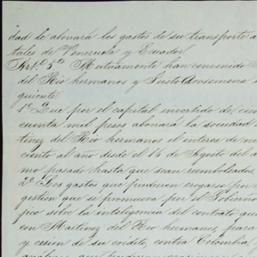 dad le abonará los gastos de su transporte a
tales de Venezuela y Ecuador
Art. 5º Mutuamente han convenido
del Rio hermanos y Justo Arosemena
guiente
1º Que por el capital invertido de cin
cuenta mil pesos abonará la sociedad
tinez del Rio hermanos el interes de
ciento al año desde el 14 de Agosto del a
mo pasado hasta que sean reembolsados
2º Los gastos que pudieren erogarse por
gestion que se promueva por el Gobierno
sobre la inteligencia del contrato que
con Martinez del Rio hermanos, para
y cesion de su credito, contra Colombia